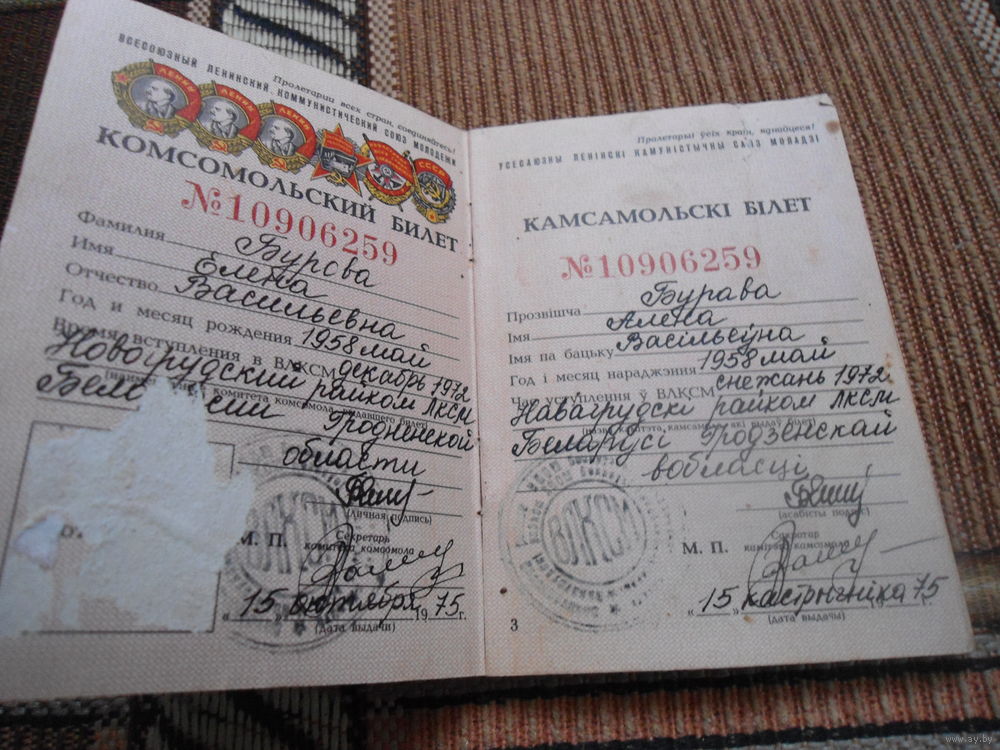 ВСЕСОЮЗНЫЙ ЛЕНИНСКИЙ КОММУНИСТИЧЕСКИЙ СОЮЗ МОЛОДЕЖИ
Пролетарии всех стран, соединяйтесь!
ЛЕНИН ЛЕНИН ЛЕНИН СССР
КОМСОМОЛЬСКИЙ БИЛЕТ
№10906259
Фамилия Бурова
Имя Елена
Отчество Васильевна
Год и месяц рождения 1958 май
Время вступления в ВЛКСМ декабрь 1972
Новогрудский райком ЛКСМ
комитета комсомола, выдавшего билет)
Гродненской
области
(личная подпись)
М. П.
Секретарь
комитета комсомола
„15“ октября 1975 г.
(дата выдачи)
Пролетарыі ўсіх краін, яднайцеся!
УСЕСАЮЗНЫ ЛЕНІНСКІ КАМУНІСТЫЧНЫ САЮЗ МОЛАДЗІ
КАМСАМОЛЬСКІ БІЛЕТ
№10906259
Прозвішча Бурава
Імя Алена
Імя па бацьку Васільеўна
Год і месяц нараджэння 1958 май
Час уступлення ў ВЛКСМ снежань 1972
Навагрудскі райком ЛКСМ
Беларусі Гродзенскай
вобласці
(асабісты подпіс)
ВЛКСМ
М. П.
Сакратар
камітэта камсамола
„15“ кастрычніка 75
(дата выдачы)
3
www.ay.by